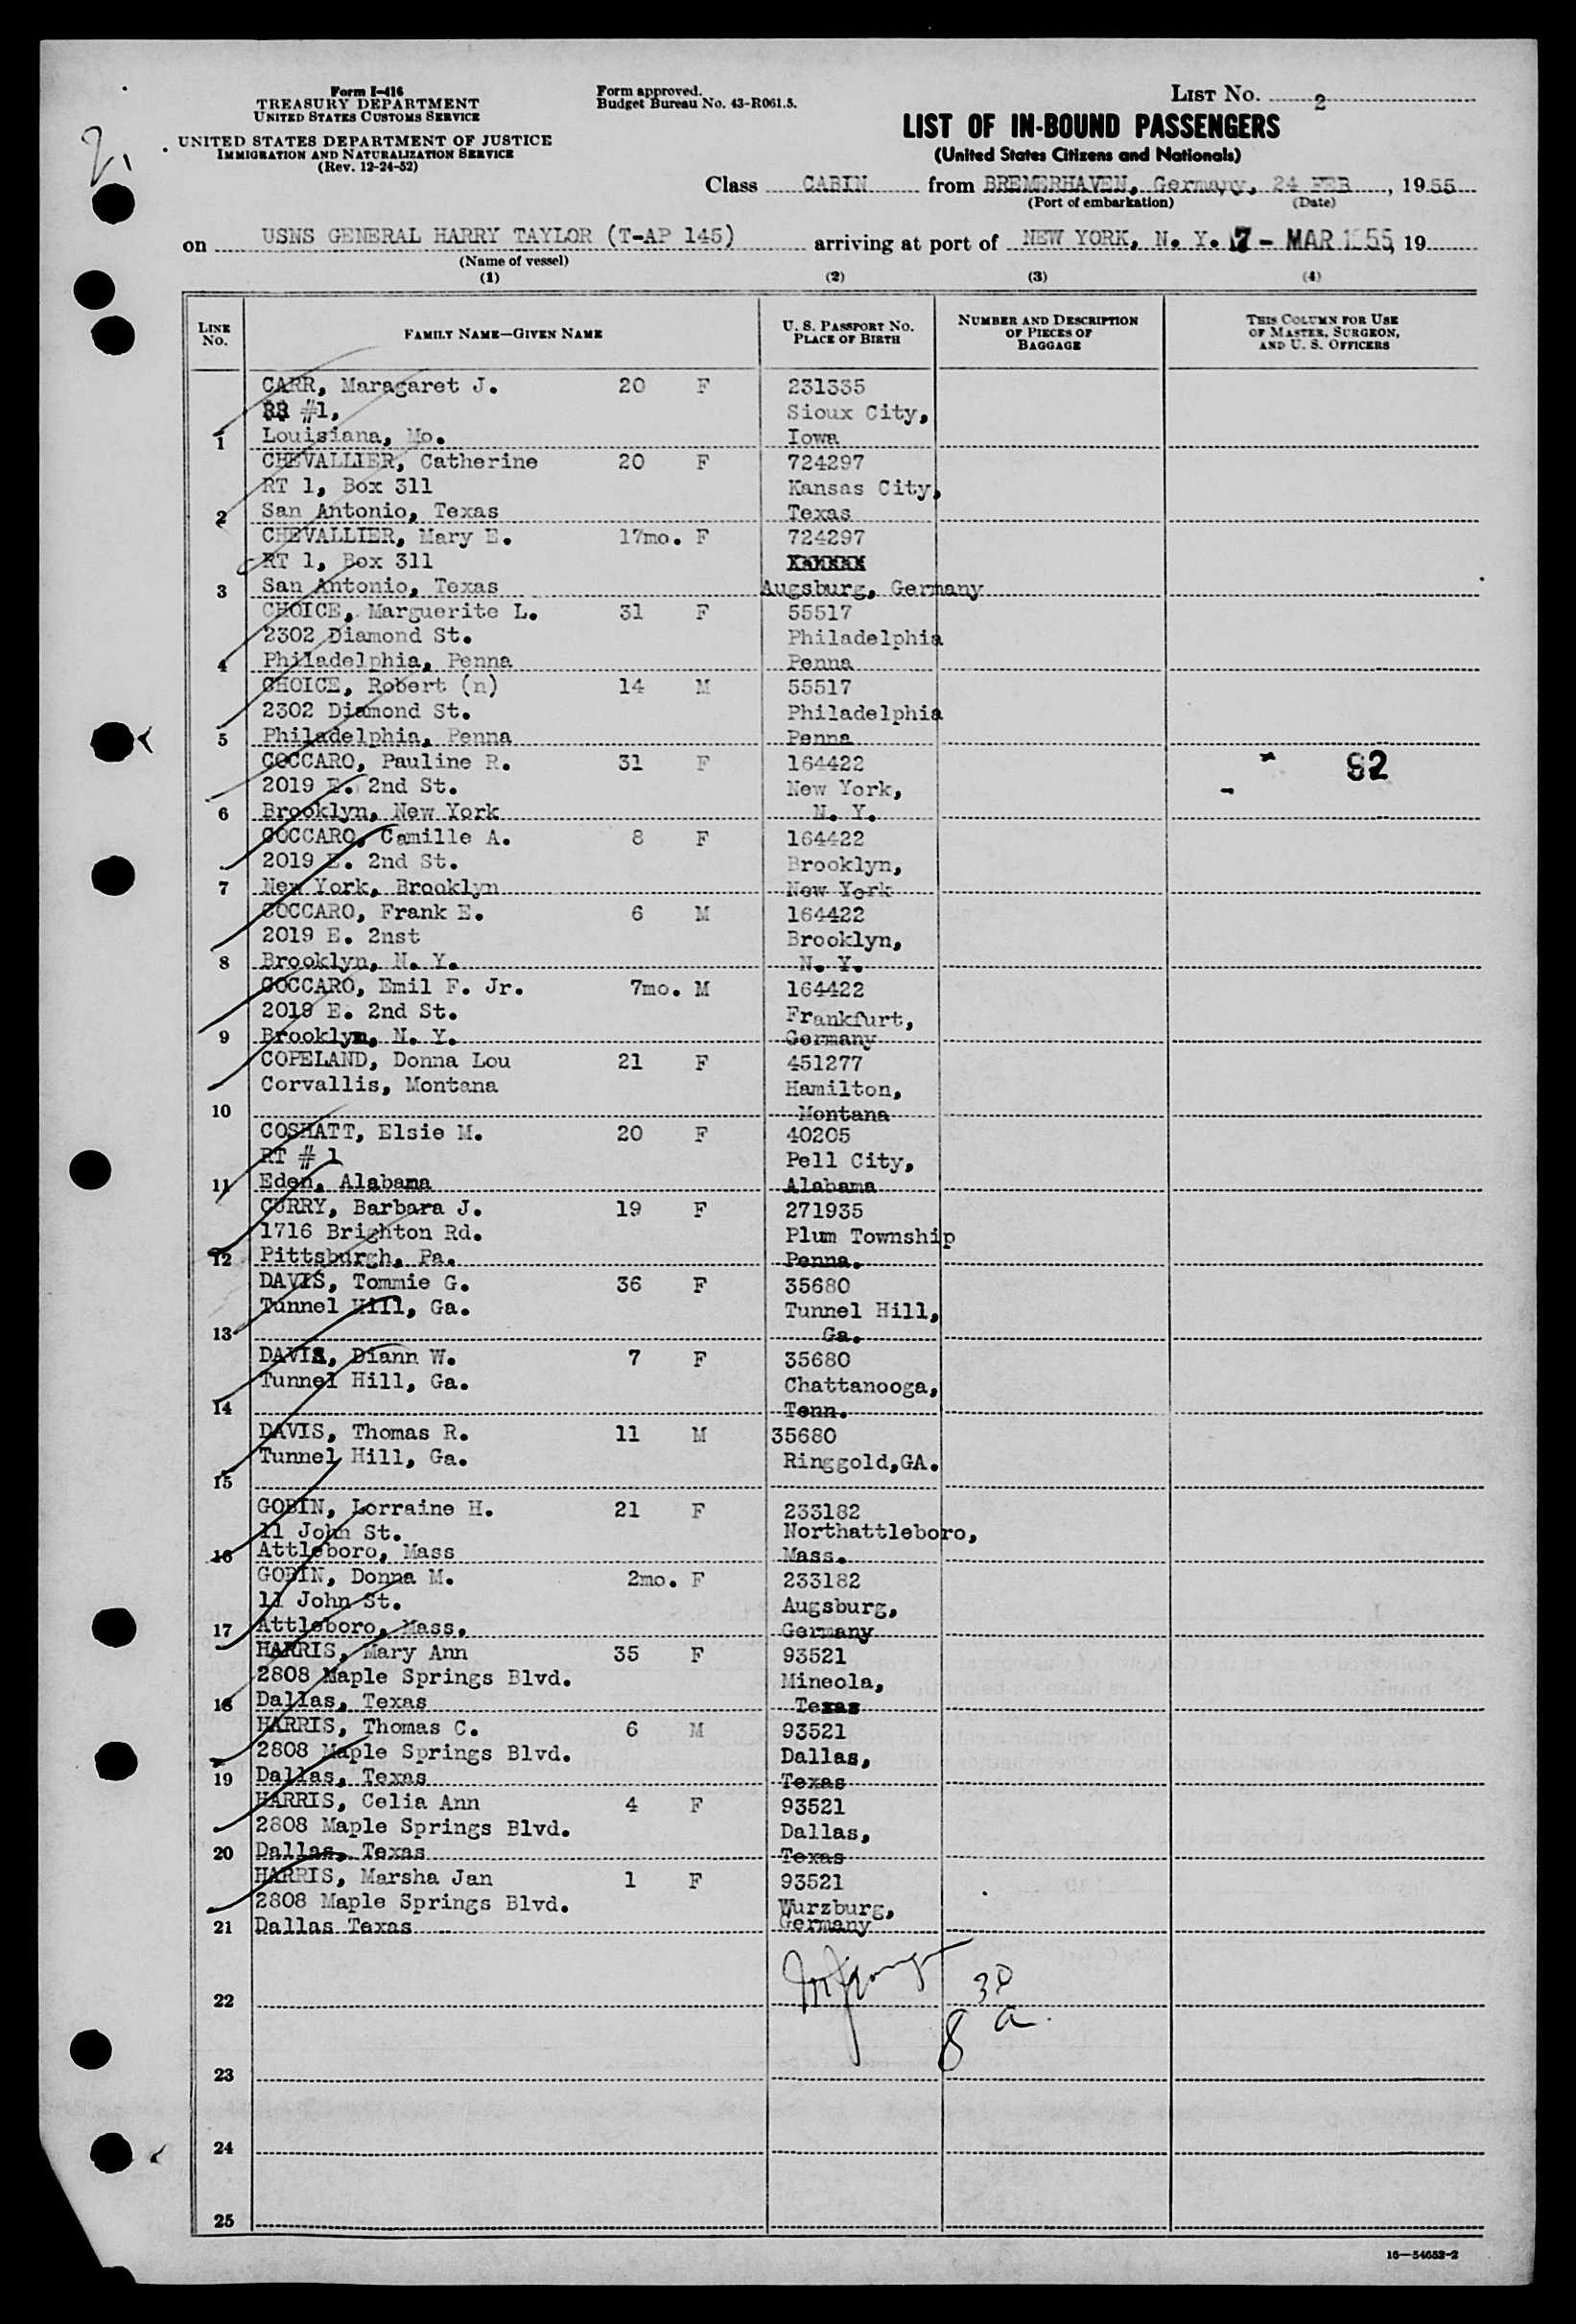 2,
Form I-416
TREASURY DEPARTMENT
UNITED STATES CUSTOMS SERVICE
UNITED STATES DEPARTMENT OF JUSTICE
IMMIGRATION AND NATURALIZATION SERVICE
(Rev. 12-24-52)
Form approved.
Budget Bureau No. 43-R061.5.
LIST NO. 2
LIST OF IN-BOUND PASSENGERS
(United States Citizens and Nationals)
Class CABIN from BREMERHAVEN, Germany, 24 FEB, 1955
(Port of embarkation) (Date)
on USNS GENERAL HARRY TAYLOR (T-AP 145) arriving at port of NEW YORK, N. Y. 7 - MAR 1955, 19
(Name of vessel)
(1) (2) (3) (4)
LINE NO.
FAMILY NAME—GIVEN NAME
U. S. PASSPORT NO.
PLACE OF BIRTH
NUMBER AND DESCRIPTION
OF PIECES OF
BAGGAGE
THIS COLUMN FOR USE
OF MASTER, SURGEON,
AND U. S. OFFICERS
CARR, Maragaret J. 20 F 231335
RR #1, Sioux City,
1 Louisiana, Mo. Iowa
CHEVALLIER, Catherine 20 F 724297
RT 1, Box 311 Kansas City,
2 San Antonio, Texas Texas
CHEVALLIER, Mary E. 17mo. F 724297
RT 1, Box 311
3 San Antonio, Texas Augsburg, Germany
CHOICE, Marguerite L. 31 F 55517
2302 Diamond St. Philadelphia
4 Philadelphia, Penna Penna
CHOICE, Robert (n) 14 M 55517
2302 Diamond St. Philadelphia
5 Philadelphia, Penna Penna
COCCARO, Pauline R. 31 F 164422 - 82
2019 E. 2nd St. New York,
6 Brooklyn, New York N. Y.
COCCARO, Camille A. 8 F 164422
2019 E. 2nd St. Brooklyn,
7 New York, Brooklyn New York
COCCARO, Frank E. 6 M 164422
2019 E. 2nst Brooklyn,
8 Brooklyn, N. Y. N. Y.
COCCARO, Emil F. Jr. 7mo. M 164422
2019 E. 2nd St. Frankfurt,
9 Brooklyn, N. Y. Germany
COPELAND, Donna Lou 21 F 451277
Corvallis, Montana Hamilton,
10 Montana
COSHATT, Elsie M. 20 F 40205
RT # 1 Pell City,
11 Eden, Alabama Alabama
CURRY, Barbara J. 19 F 271935
1716 Brighton Rd. Plum Township
12 Pittsburgh, Pa. Penna.
DAVIS, Tommie G. 36 F 35680
Tunnel Hill, Ga. Tunnel Hill,
13 Ga.
DAVIS, Diann W. 7 F 35680
Tunnel Hill, Ga. Chattanooga,
14 Tenn.
DAVIS, Thomas R. 11 M 35680
Tunnel Hill, Ga. Ringgold,GA.
15
GOBIN, Lorraine H. 21 F 233182
11 John St. Northattleboro,
16 Attleboro, Mass Mass.
GOBIN, Donna M. 2mo. F 233182
11 John St. Augsburg,
17 Attleboro, Mass. Germany
HARRIS, Mary Ann 35 F 93521
2808 Maple Springs Blvd. Mineola,
18 Dallas, Texas Texas
HARRIS, Thomas C. 6 M 93521
2808 Maple Springs Blvd. Dallas,
19 Dallas, Texas Texas
HARRIS, Celia Ann 4 F 93521
2808 Maple Springs Blvd. Dallas,
20 Dallas, Texas Texas
HARRIS, Marsha Jan 1 F 93521
2808 Maple Springs Blvd. Wurzburg,
21 Dallas Texas Germany
22
30
8 a.
23
24
25
16—54652-2